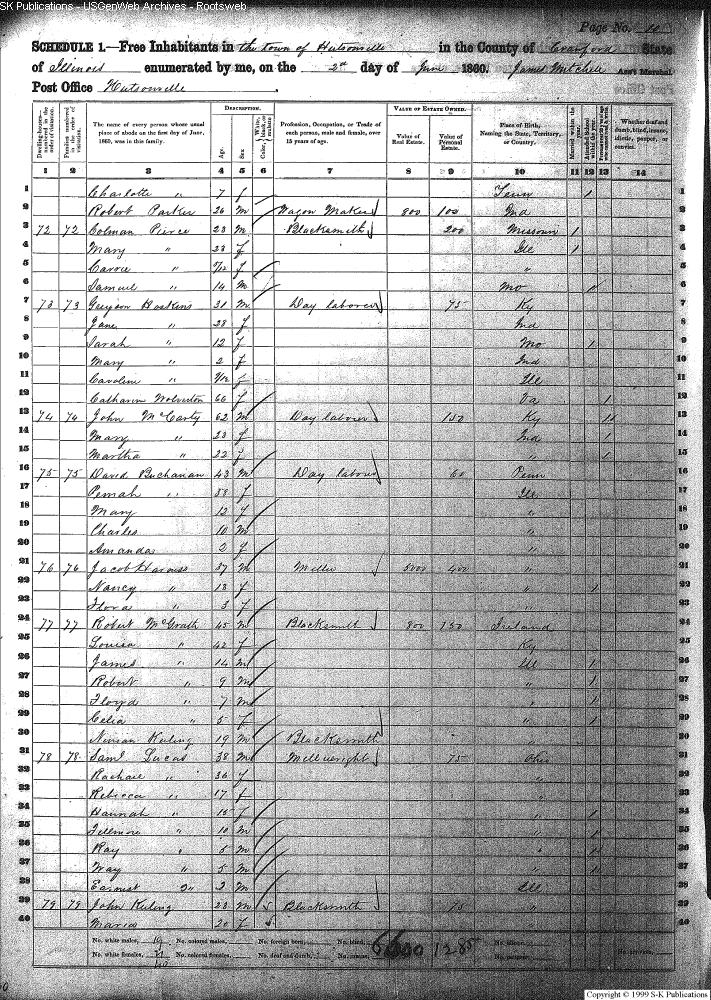 SK Publications - USGenWeb Archives - Rootsweb
Page No. 10
SCHEDULE 1.—Free Inhabitants in the town of Hutsonville in the County of Crawford State
of Illinois enumerated by me, on the 2d day of June 1860. James Mitchell Ass't Marshal.
Post Office Hutsonville
Dwelling-houses—numbered in the order of visitation.
Families numbered in the order of visitation.
The name of every person whose usual place of abode on the first day of June, 1860, was in this family.
DESCRIPTION.
Age. Sex. White, black, or mulatto. Color,
Profession, Occupation, or Trade of each person, male and female, over 15 years of age.
VALUE OF ESTATE OWNED.
Value of Real Estate. Value of Personal Estate.
Place of Birth, Naming the State, Territory, or Country.
Married within the year. Attended School within the year.
Whether deaf and dumb, blind, insane, idiotic, pauper, or convict.
1 2 3 4 5 6 7 8 9 10 11 12 13 14
1 Charlotte " 7 f Tenn / 1
2 Robert Parker 26 m Wagon Maker 800 100 Ind 2
3 72 72 Colman Pierce 23 m Blacksmith 200 Missouri 1 3
4 Mary " 23 f Ill 1 4
5 Carrie " /12 f " 5
6 Samuel " 14 m Mo 1 6
7 73 73 Haskins 31 m Day laborer 75 Ky 7
8 Jane " 28 f Ind 8
9 Sarah " 12 f Mo 1 9
10 Mary " 2 f Ind 10
11 Caroline " /12 f Ill 11
12 Catharin Wolverton 66 f Va 1 12
13 74 74 John McCarty 62 m Day laborer 150 Ky 13
14 Mary " 23 f Ind 1 14
15 Martha " 22 f " 1 15
16 75 75 David Buchanan 43 m Day laborer 60 Penn 16
17 38 f Ill 17
18 Mary 12 f " 18
19 Charles 10 m " 19
20 Amanda 2 f " 20
21 76 76 Jacob 37 m Miller 5000 400 " 21
22 Nancy " 13 f " 1 22
23 Flora " 3 f " 23
24 77 77 Robert McGrath 45 m Blacksmith 800 150 Ireland 24
25 Louisa " 42 f Ky 25
26 James " 14 m Ill 1 26
27 Robert " 9 m " 1 27
28 Floyd " 7 m " 1 28
29 Celia " 5 f " 1 29
30 Keling 19 m Blacksmith " 30
31 78 78 Saml Lucas 38 m Millwright 75 Ohio 31
32 Rachael " 36 f " 32
33 Rebecca " 17 f " 33
34 Hannah " 15 f " 1 34
35 Fillmore " 10 m " 1 35
36 Ray " 5 m " 36
37 Way " 5 m " 37
38 Earnest " 2 m Ill 38
39 79 79 John Keling 23 m Blacksmith 75 " 39
40 Maria 20 f " 40
No. white males, 19 No. colored males, No. foreign born, No. blind,
No. white females, 21 No. colored females, No. deaf and dumb, No. insane,
40
6600 1285
No. idiotic,
No. paupers,
No. convicts,
Copyright © 1999 S-K Publications